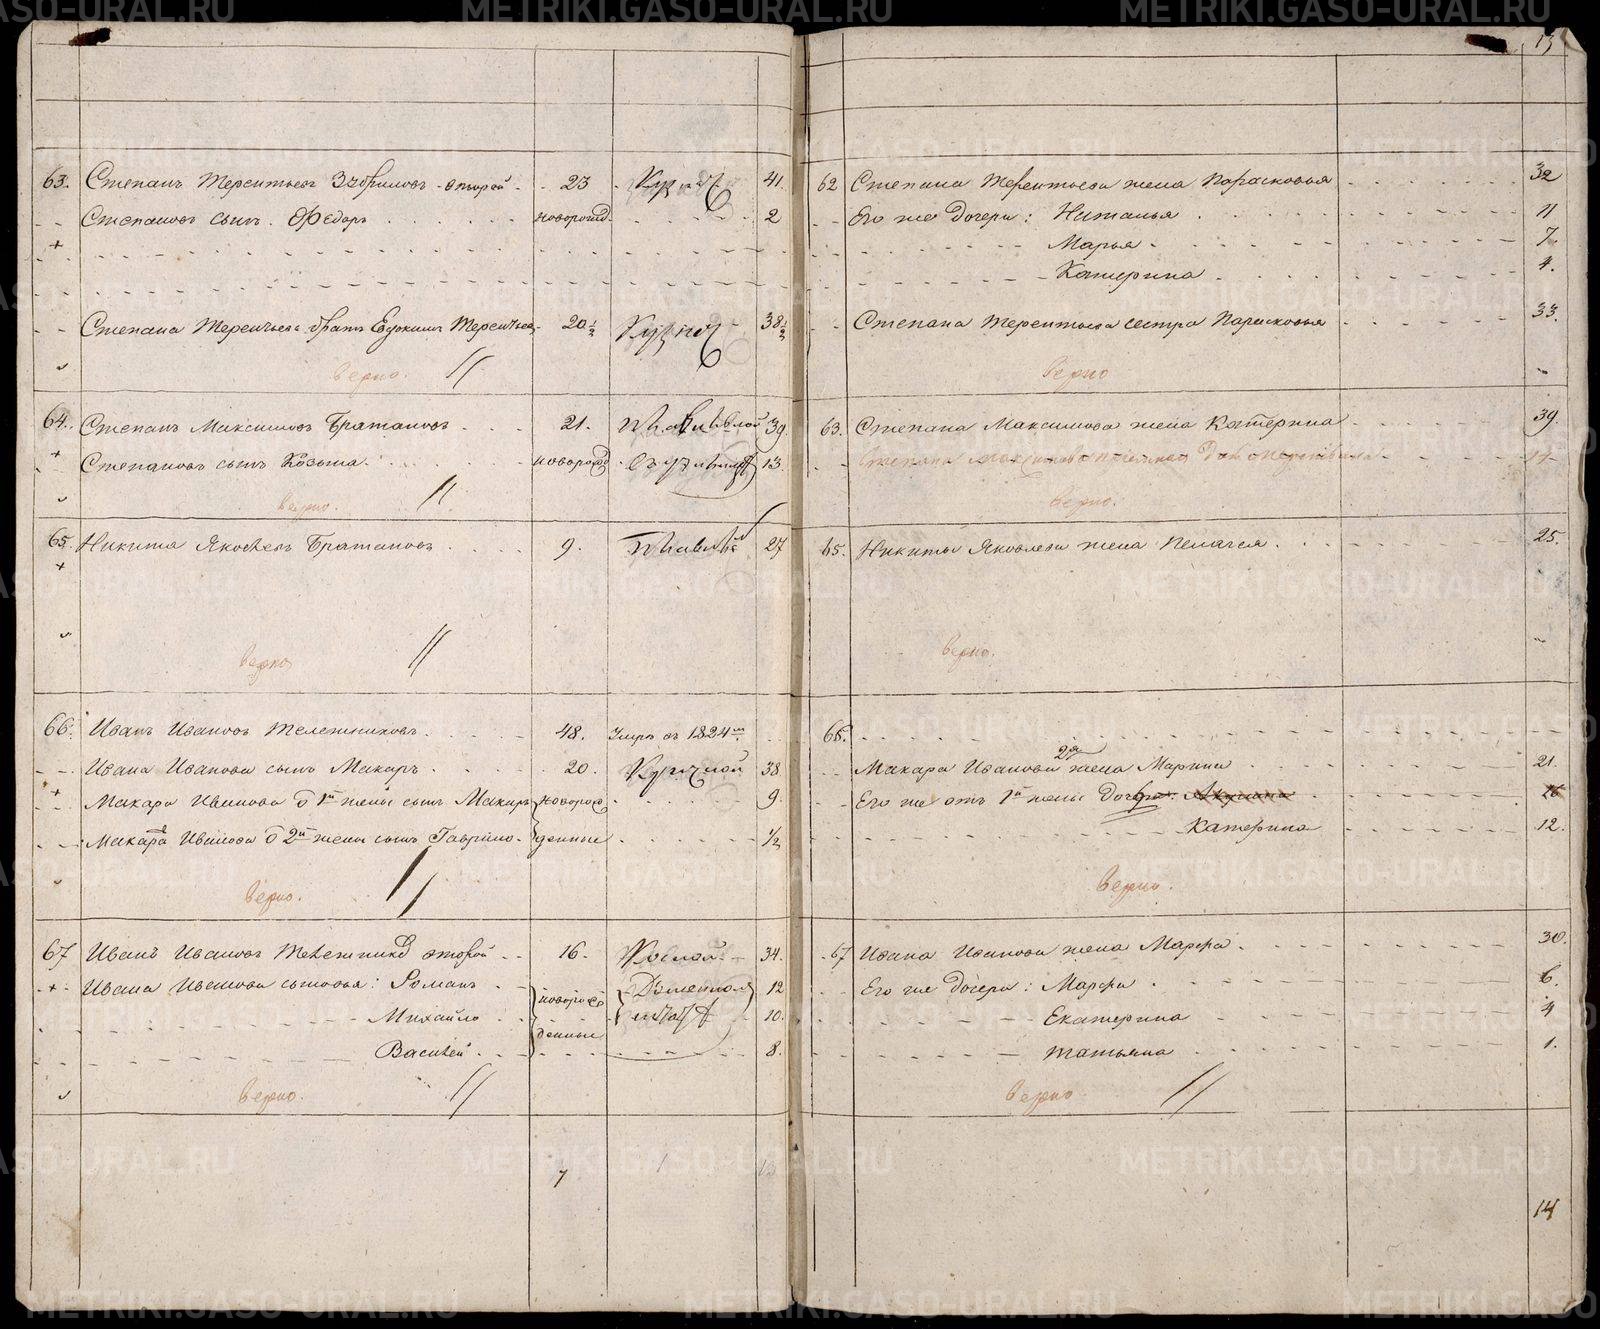 13
63. Степанъ Терентьевъ второй 23 41
Степановъ сынъ Ѳедоръ новорожд. 2
Степана Терентьева братъ Евдокимъ Терентьевъ 20½ 38½
верно.
64. Степанъ Максимовъ Братановъ 21. 39
Степановъ сынъ Козьма новорожд 13
верно.
65. Никита Яковлевъ Братановъ 9. 27
верно
66. Иванъ Ивановъ Тележниковъ 48. Умре въ 1824мъ
Ивана Иванова сынъ Макаръ 20. 38
Макара Иванова о 1й жены сынъ Макаръ новорож 9
Макара Иванова о 2й жены сынъ Гаврило денные ½
верно.
67 Иванъ Ивановъ второй 16. 34.
Ивана Иванова сыновья: Романъ новорож 12
Михайло 10.
Василей денные 8.
верно.
7
62 Степана Терентьева жена Парасковья 32
Его же дочери: Наталья 11
Марья 7.
Катерина 4.
Степана Терентьева сестра Парасковья 33.
верно
63. Степана Максимова жена Катерина 39.
верно.
65. Никиты Яковлева жена Пелагея 25.
верно.
66.
Макара Иванова 2я жена Марина 21.
Его же отъ 1й жены
Катерина 12.
верно.
67 Ивана Иванова жена Марфа 30.
Его же дочери: Марфа 6.
Екатерина 4
Татьяна 1.
верно
14
METRIKI.GASO-URAL.RU